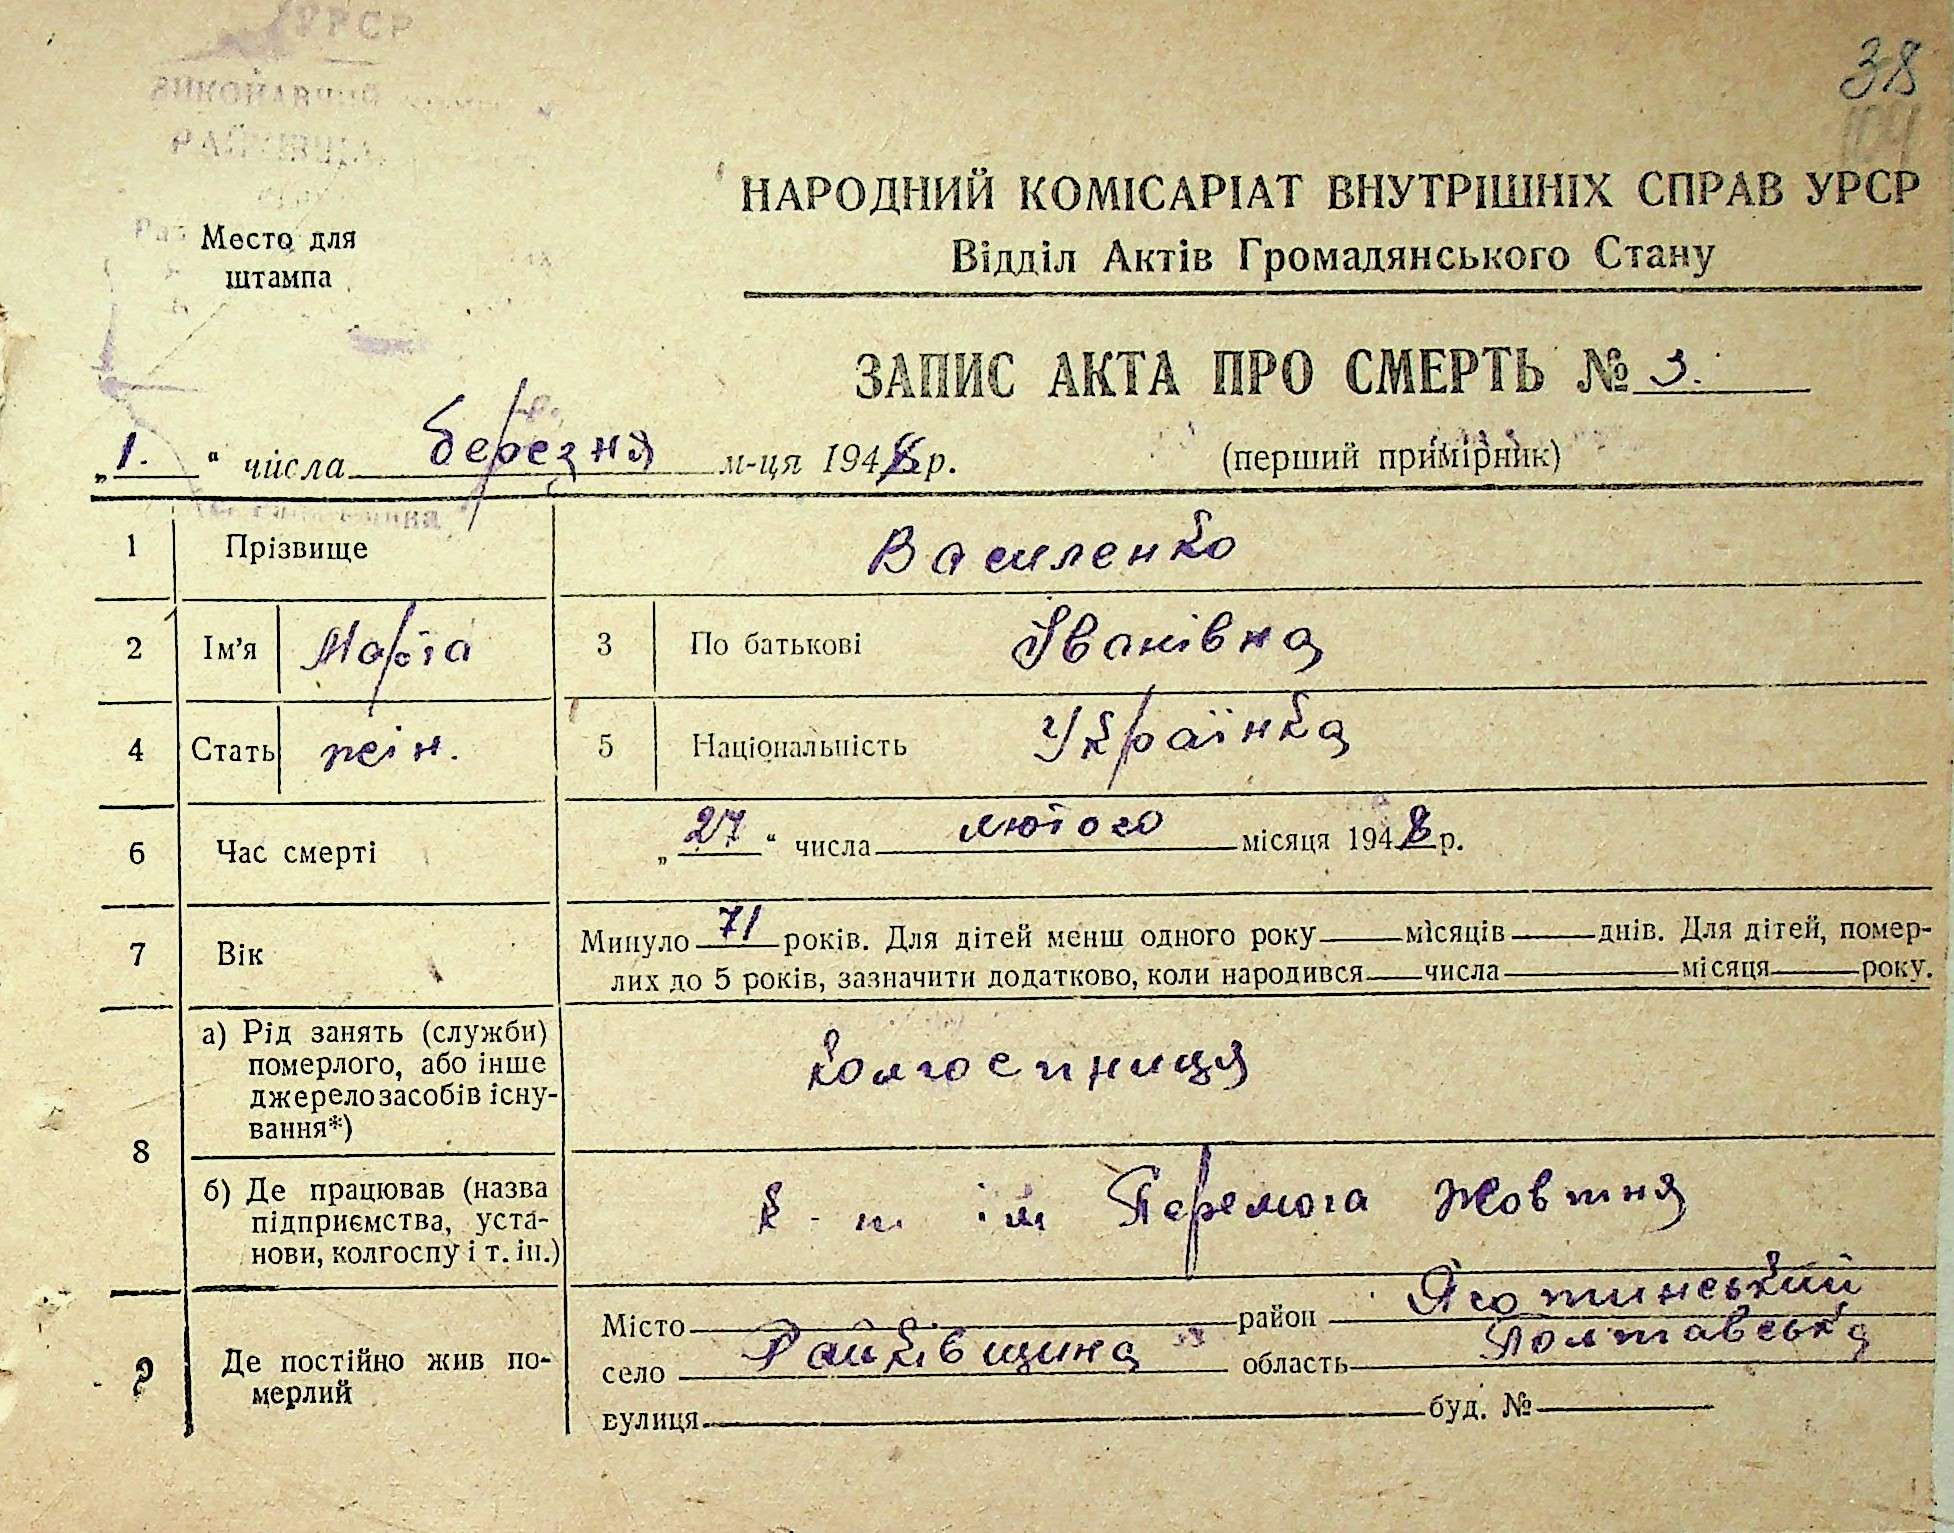 УРСР
ВИКОНАВЧИЙ
38
104
НАРОДНИЙ КОМІСАРІАТ ВНУТРІШНІХ СПРАВ УРСР
Відділ Актів Громадянського Стану
Место для
штампа
ЗАПИС АКТА ПРО СМЕРТЬ № 3.
„1.“ числа березня м-ця 1948 р. (перший примірник)
1 Прізвище Василенко
2 Ім'я Марія 3 По батькові Іванівна
4 Стать жін. 5 Національність Українка
6 Час смерті „27“ числа лютого місяця 1948 р.
7 Вік Минуло 71 років. Для дітей менш одного року місяців днів. Для дітей, помер-
лих до 5 років, зазначити додатково, коли народився числа місяця року.
8 а) Рід занять (служби)
померлого, або інше
джерело засобів існу-
вання*)
колгоспниця
б) Де працював (назва
підприємства, уста-
нови, колгоспу і т. ін.)
к-п ім Перемога Жовтня
9 Де постійно жив по-
мерлий
Місто район Яготинський
село Райківщина область Полтавська
вулиця буд. №